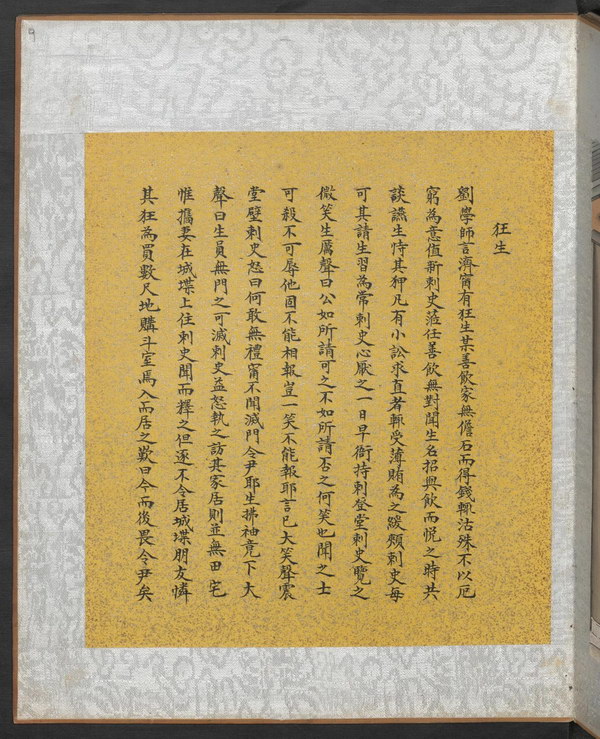 狂生
劉學師言濟甯有狂生某善飲家無儋石而得錢輒沽殊不以厄
窮為意值新刺史蒞任善飲無對聞生名招與飲而悅之時共
談讌生恃其狎凡有小訟求直者輒受薄賄為之緩頰刺史每
可其請生習為常刺史心厭之一日早衙持刺登堂刺史覽之
微笑生厲聲曰公如所請可之不如所請否之何笑也聞之士
可殺不可辱他固不能相報豈一笑不能報耶言已大笑聲震
堂壁刺史怒曰何敢無禮甯不聞滅門令尹耶生拂袖竟下大
聲曰生員無門之可滅刺史益怒執之訪其家居則並無田宅
惟攜妻在城堞上住刺史聞而釋之但逐不令居城堞朋友憐
其狂為買數尺地購斗室焉入而居之歎曰今而後畏令尹矣